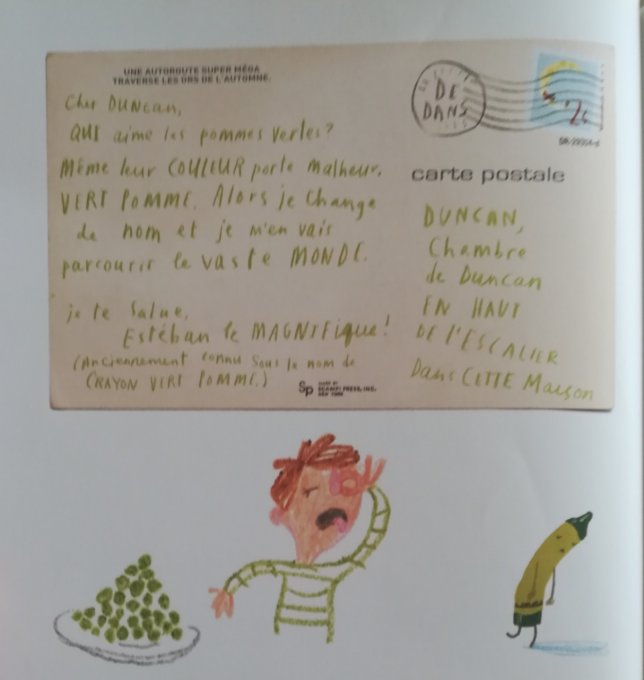 UNE AUTOROUTE SUPER MÉGA
TRAVERSE LES ORS DE L'AUTOMNE.
Cher DUNCAN,
QUI aime les pommes vertes?
Même leur COULEUR porte malheur.
VERT POMME. Alors je change
de nom et je m'en vais
parcourir le vaste MONDE.
je te salue,
Estéban le MAGNIFique!
(Anciennement connu sous le nom de
CRAYON VERT POMME.)
DE
DANS
carte postale
DUNCAN,
Chambre
de Duncan
EN HAUT
DE l'ESCALIER
Dans CETTE Maison
Sp
NEW YORK